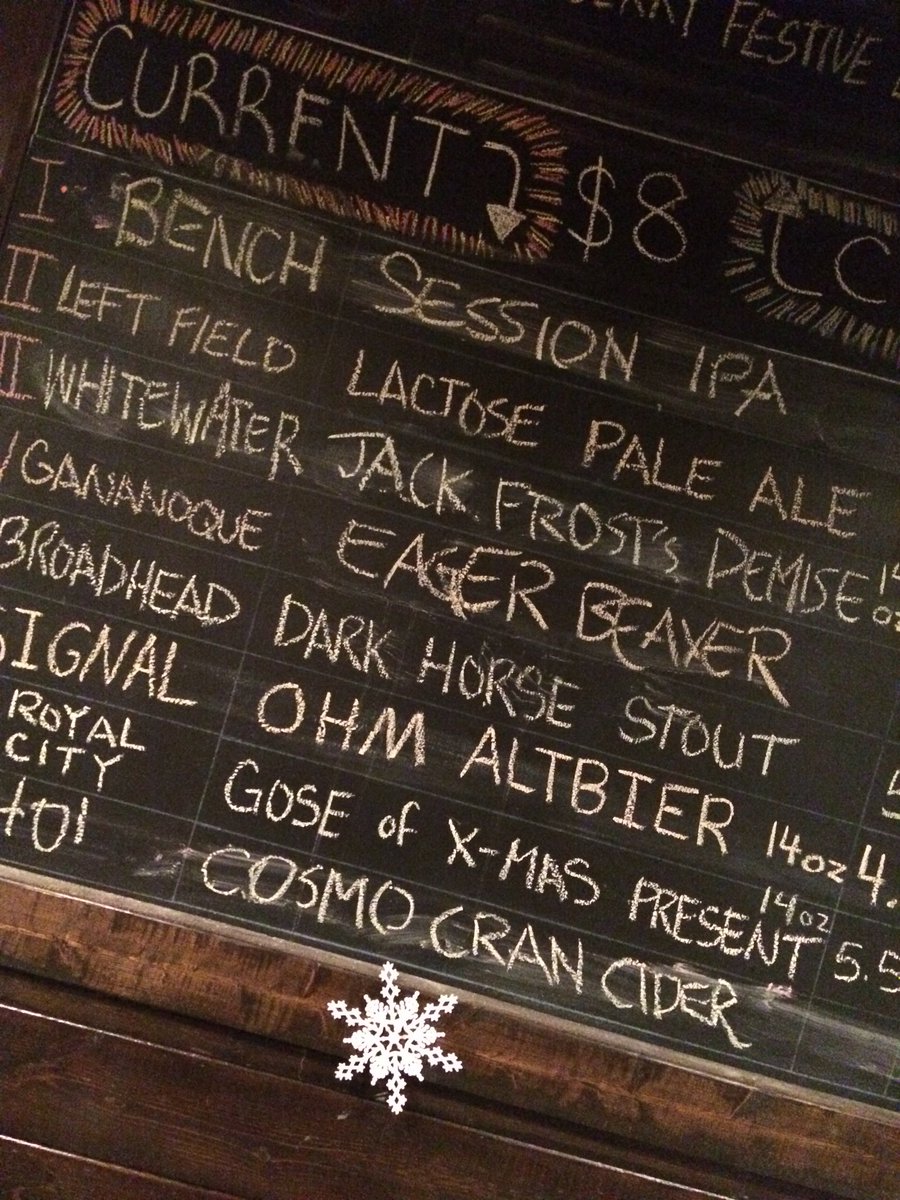 FESTIVE
CURRENT $8
I BENCH SESSION IPA
II LEFT FIELD LACTOSE PALE ALE
II WHITEWATER JACK FROST'S DEMISE 14 oz
GANANOQUE EAGER BEAVER
BROADHEAD DARK HORSE STOUT 5
SIGNAL OHM ALTBIER 14oz 4.
ROYAL CITY GOSE of X-MAS PRESENT 14oz 5.5
401 COSMO CRAN CIDER